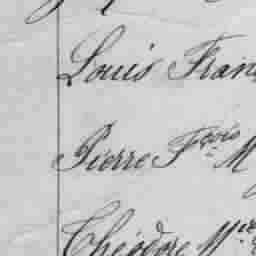 Louis Fran
Pierre Fçois M
Théodore M.ie